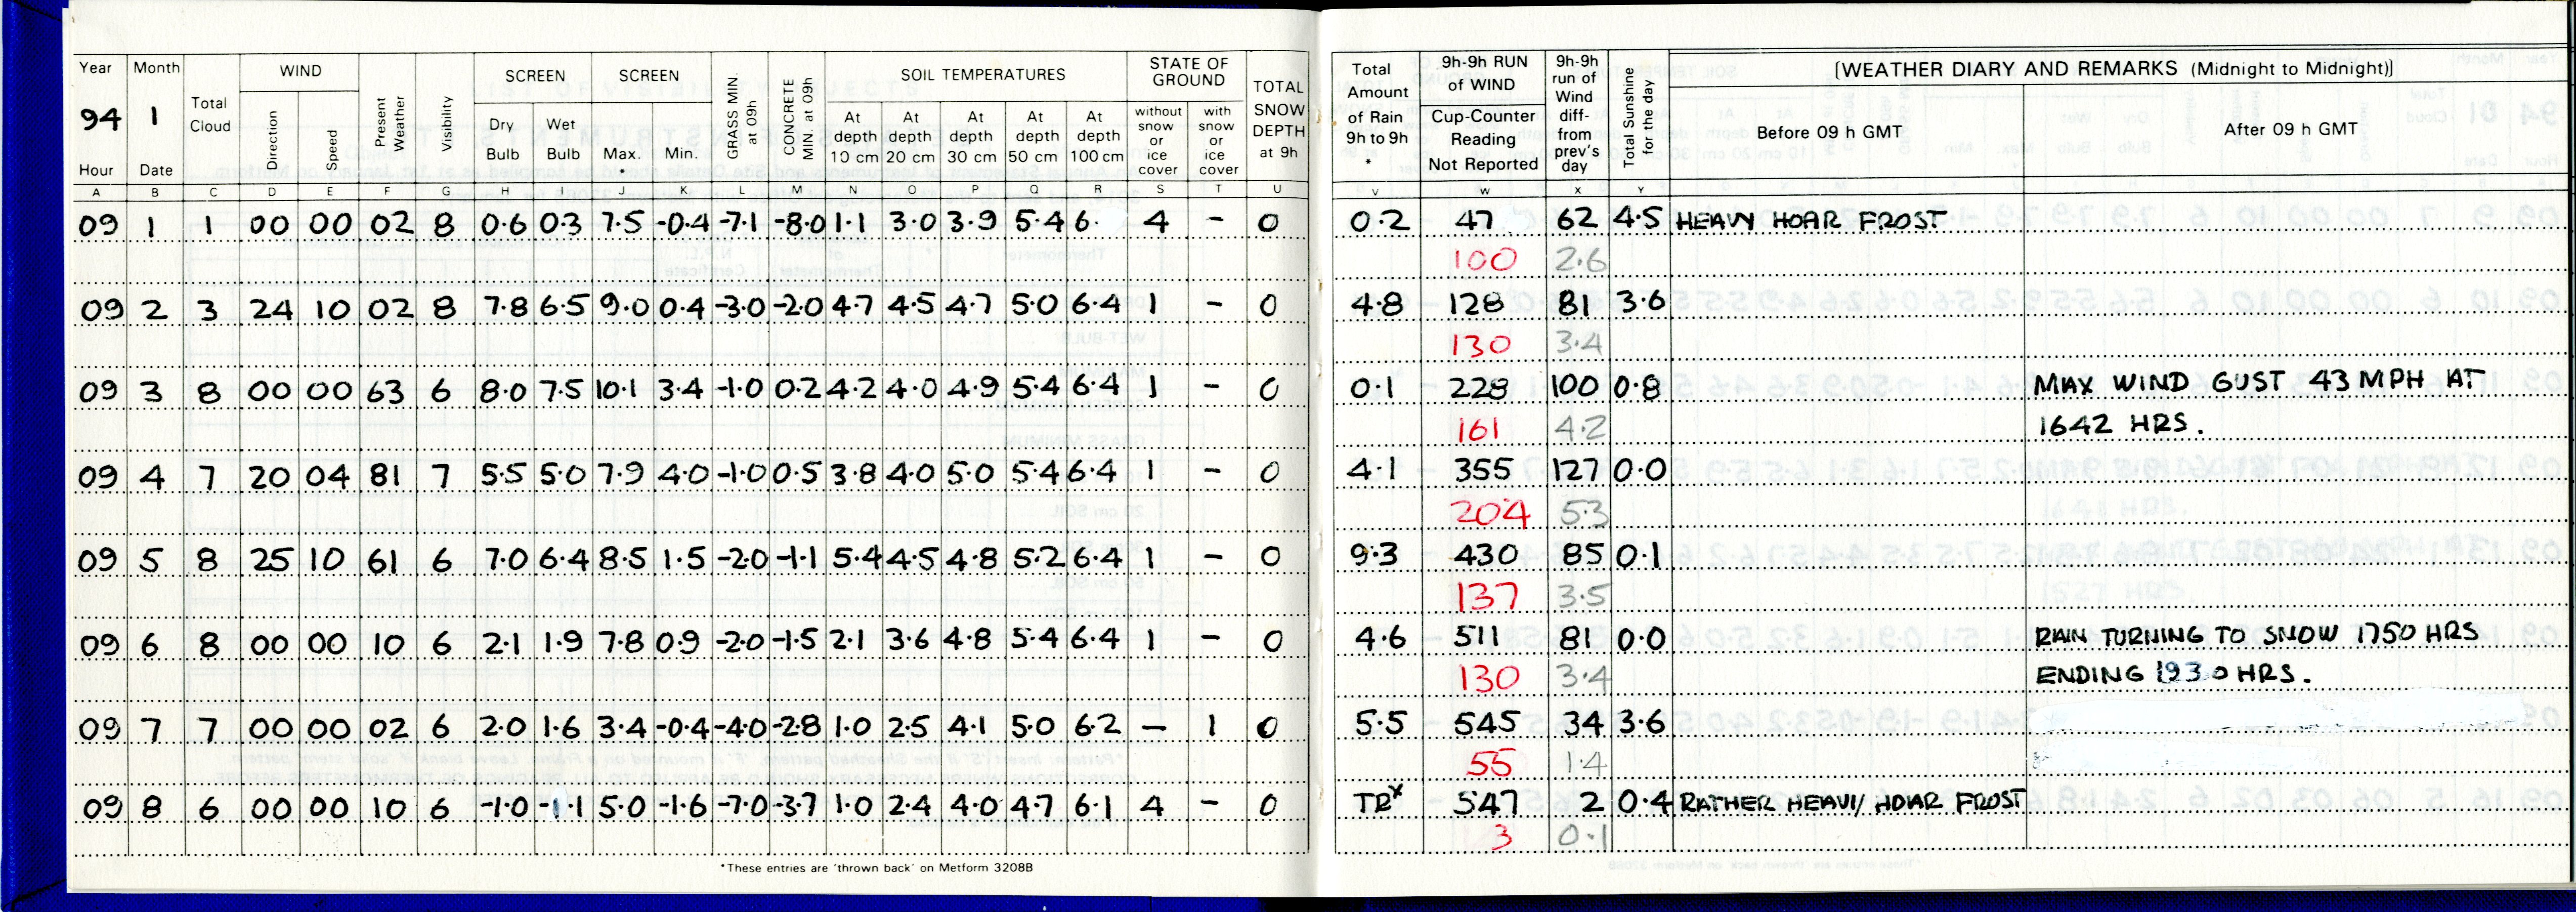 Year Month WIND SCREEN SCREEN GRASS MIN. at 09h CONCRETE MIN. at 09h SOIL TEMPERATURES STATE OF GROUND TOTAL SNOW DEPTH at 9h Total Amount of Rain 9h to 9h * 9h-9h RUN of WIND 9h-9h run of Wind diff- from prev's day Total Sunshine for the day [WEATHER DIARY AND REMARKS (Midnight to Midnight)]
94 1 Total Cloud Direction Speed Present Weather Visibility Dry Bulb Wet Bulb Max. * Min. At depth 10 cm At depth 20 cm At depth 30 cm At depth 50 cm At depth 100 cm without snow or ice cover with snow or ice cover Cup-Counter Reading Not Reported Before 09 h GMT After 09 h GMT
Hour Date
A B C D E F G H J K L M N O P Q R S T U V W X Y
09 1 1 00 00 02 8 0·6 0·3 7·5 -0·4 -7·1 -8·0 1·1 3·0 3·9 5·4 6· 4 - 0 0·2 47 62 4·5 HEAVY HOAR FROST
100 2·6
09 2 3 24 10 02 8 7·8 6·5 9·0 0·4 -3·0 -2·0 4·7 4·5 4·7 5·0 6·4 1 - 0 4·8 128 81 3·6
130 3·4
09 3 8 00 00 63 6 8·0 7·5 10·1 3·4 -1·0 0·2 4·2 4·0 4·9 5·4 6·4 1 - 0 0·1 228 100 0·8 MAX WIND GUST 43 MPH AT
161 4·2 1642 HRS.
09 4 7 20 04 81 7 5·5 5·0 7·9 4·0 -1·0 0·5 3·8 4·0 5·0 5·4 6·4 1 - 0 4·1 355 127 0·0
204 5·3
09 5 8 25 10 61 6 7·0 6·4 8·5 1·5 -2·0 -1·1 5·4 4·5 4·8 5·2 6·4 1 - 0 9·3 430 85 0·1
137 3·5
09 6 8 00 00 10 6 2·1 1·9 7·8 0·9 -2·0 -1·5 2·1 3·6 4·8 5·4 6·4 1 - 0 4·6 511 81 0·0 RAIN TURNING TO SNOW 1750 HRS
130 3·4 ENDING 1930 HRS.
09 7 7 00 00 02 6 2·0 1·6 3·4 -0·4 -4·0 -2·8 1·0 2·5 4·1 5·0 6·2 - 1 0 5·5 545 34 3·6
55 1·4
09 8 6 00 00 10 6 -1·0 -1·1 5·0 -1·6 -7·0 -3·7 1·0 2·4 4·0 4·7 6·1 4 - 0 TR 547 2 0·4 RATHER HEAVY HOAR FROST
3 0·1
*These entries are 'thrown back' on Metform 3208B